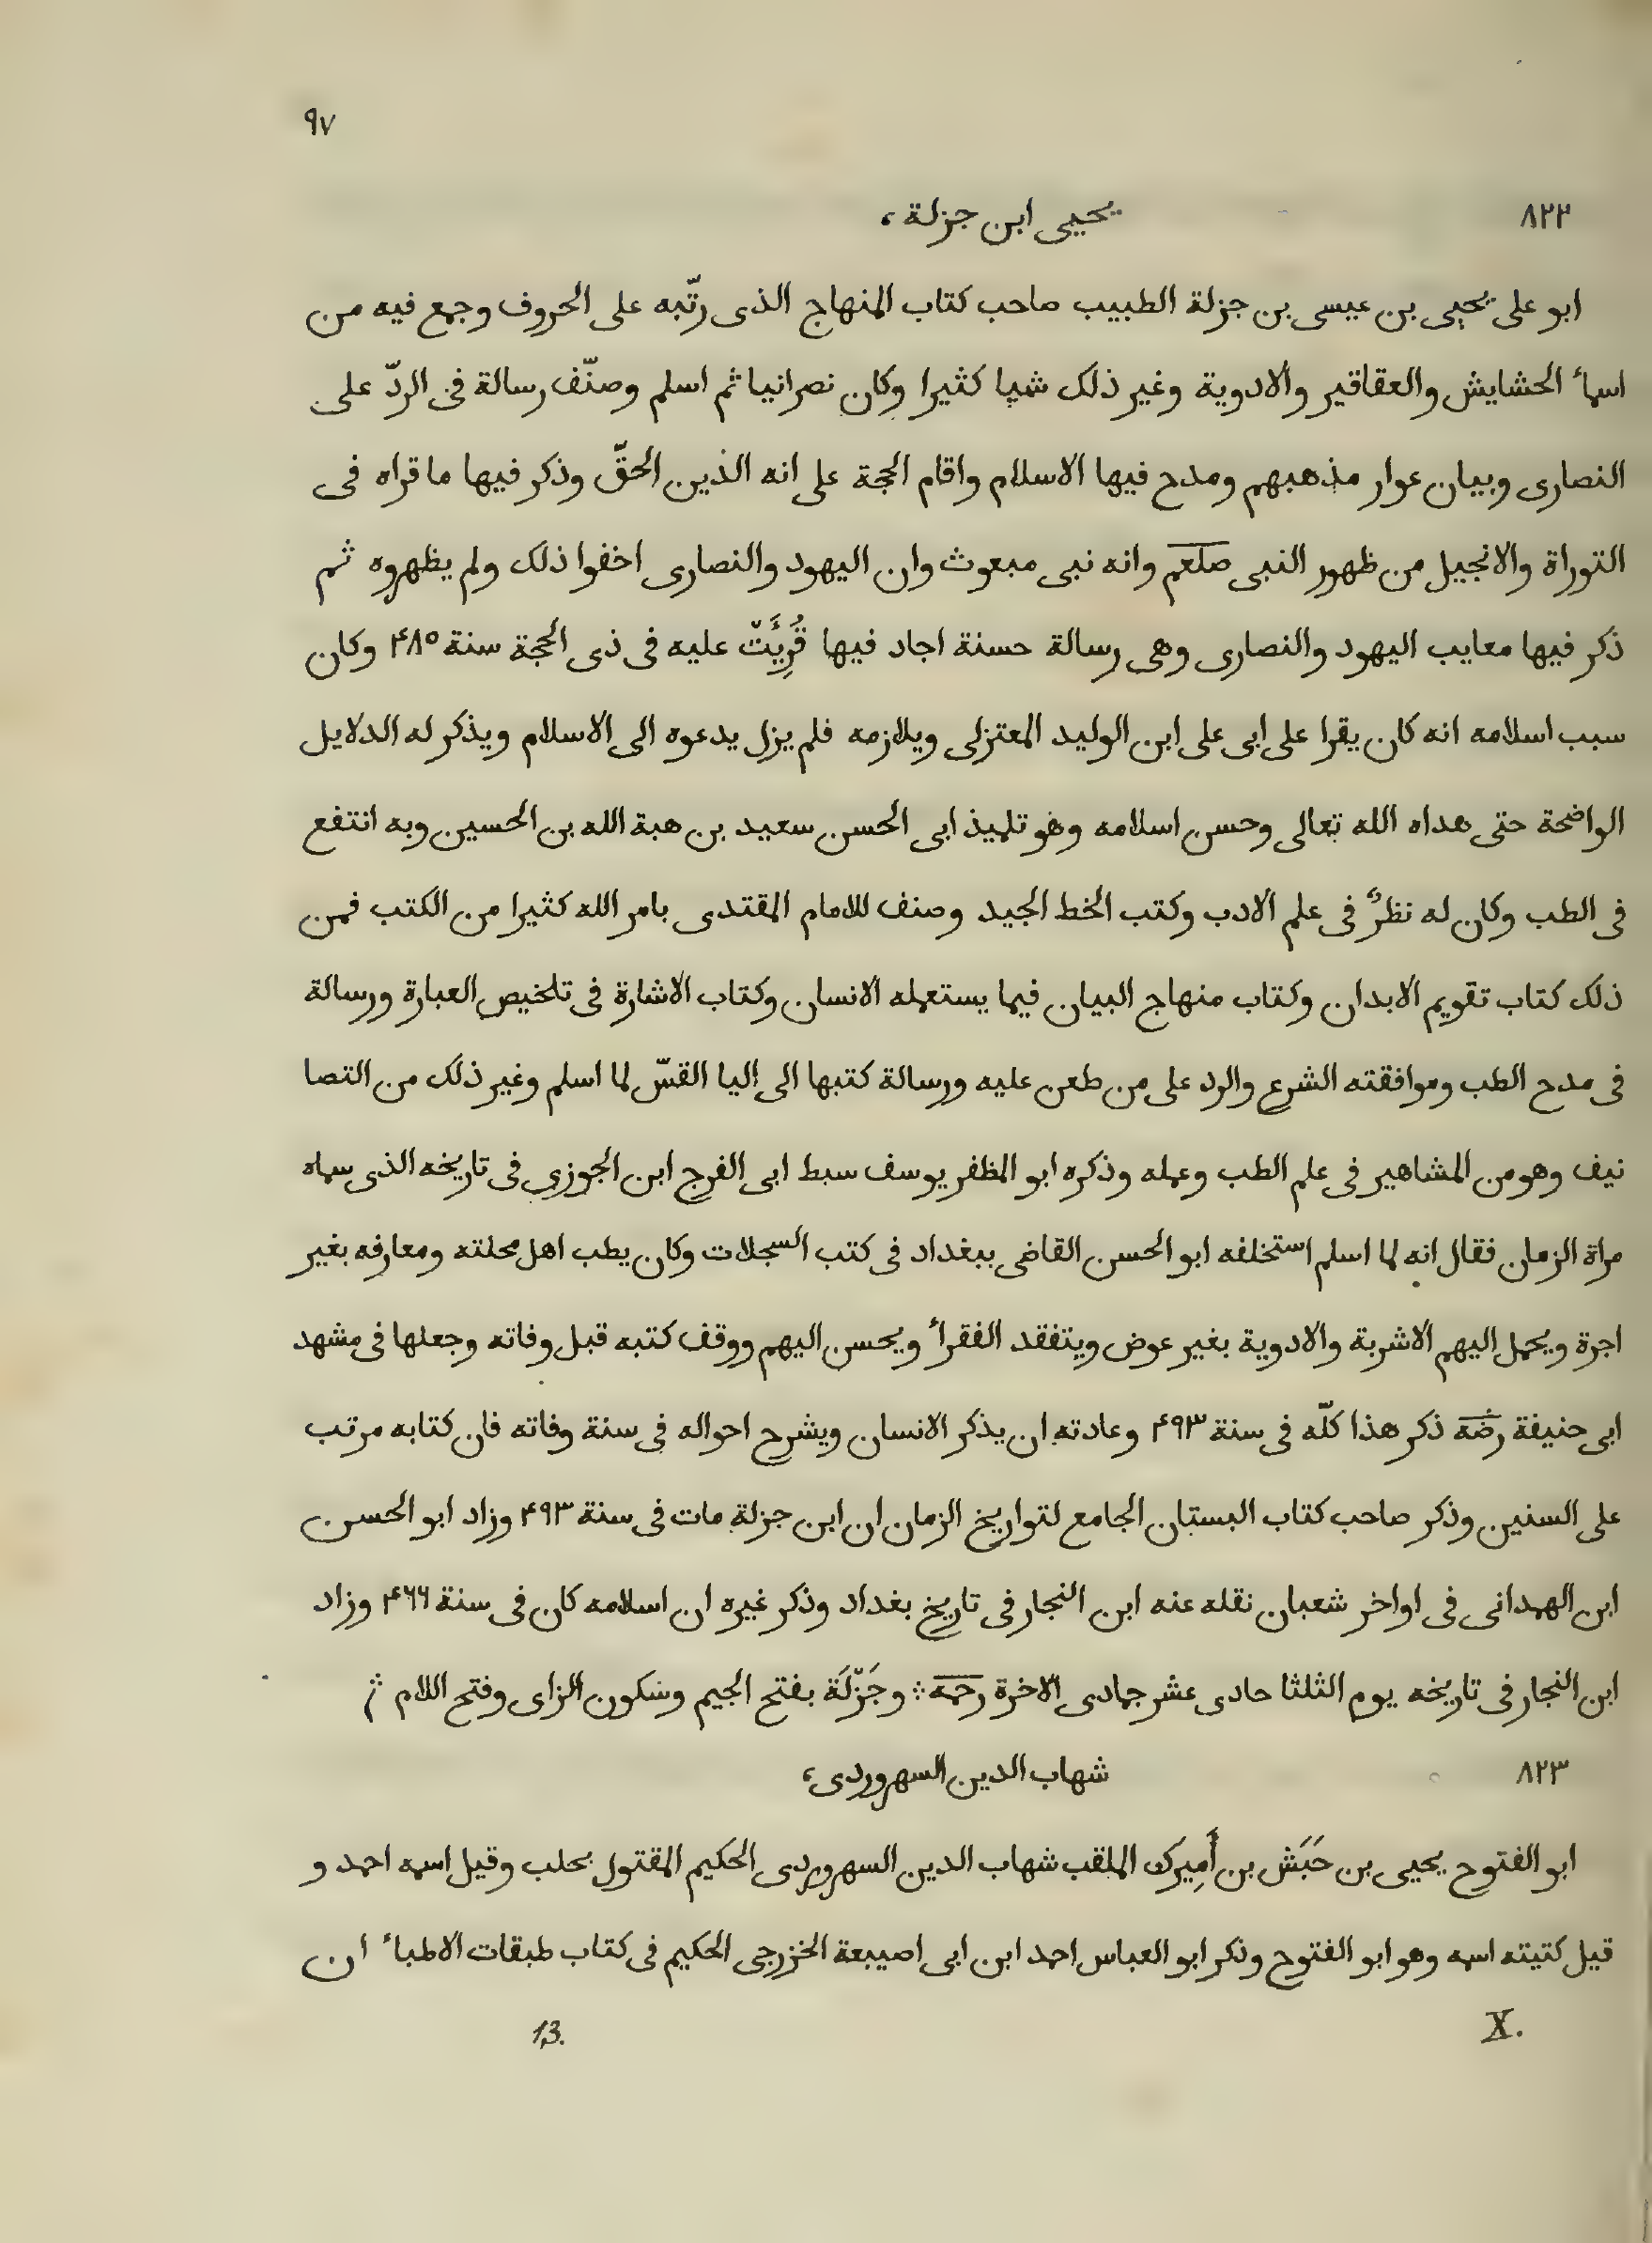 ٩٧
٨٢٢ يحيى ابن جزلة،
ابو على يحيى بن عيسى بن جزلة الطبيب صاحب كتاب المنهاج الذى رتّبه على الحروف وجمع فيه من
اسمأ الحشايش والعقاقير والادوية وغير ذلك شيا كثيرا وكان نصرانيا ثم اسلم وصنّف رسالة فى الردّ على
النصارى وبيان عوار مذهبهم ومدح فيها الاسلام واقام الحجة على انه الدين الحقّ وذكر فيها ما قراه فى
التوراة والانجيل من ظهور النبى صلعم وانه نبى مبعوث وان اليهود والنصارى اخفوا ذلك ولم يظهروه ثم
ذكر فيها معايب اليهود والنصارى وهى رسالة حسنة اجاد فيها قُرِيَّت عليه فى ذى الحجة سنة ۴٨٥ وكان
سبب اسلامه انه كان يقرا على ابى على ابن الوليد المعتزلى ويلازمه فلم يزل يدعوه الى الاسلام ويذكر له الدلايل
الواضحة حتى هداه الله تعالى وحسن اسلامه وهو تلميذ ابى الحسن سعيد بن هبة الله بن الحسين وبه انتفع
فى الطب وكان له نظرٌ فى علم الادب وكتب الخط الجيد وصنف للامام المقتدى بامر الله كثيرا من الكتب فمن
ذلك كتاب تقويم الابدان وكتاب منهاج البيان فيما يستعمله الانسان وكتاب الاشارة فى تلخيص العبارة ورسالة
فى مدح الطب وموافقته الشرع والرد على من طعن عليه ورسالة كتبها الى اليا القسّ لما اسلم وغير ذلك من التصا
نيف وهو من المشاهير فى علم الطب وعمله وذكره ابو المظفر يوسف سبط ابى الفرج ابن الجوزي فى تاريخه الذى سماه
مراة الزمان فقال انه لما اسلم استخلفه ابو الحسن القاضى ببغداد فى كتب السجلات وكان يطب اهل محلته ومعارفه بغير
اجرة ويحمل اليهم الاشربة والادوية بغير عوض ويتفقد الفقرأ ويحسن اليهم ووقف كتبه قبل وفاته وجعلها فى مشهد
ابى حنيفة رضّه ذكر هذا كلّه فى سنة ۴٩٣ وعادته ان يذكر الانسان ويشرح احواله فى سنة وفاته فان كتابه مرتب
على السنين وذكر صاحب كتاب البستان الجامع لتواريخ الزمان ان ابن جزلة مات فى سنة ۴٩٣ وزاد ابو الحسن
ابن الهمدانى فى اواخر شعبان نقله عنه ابن النجار فى تاريخ بغداد وذكر غيره ان اسلامه كان فى سنة ۴٦٦ وزاد
ابن النجار فى تاريخه يوم الثلثا حادى عشر جمادى الاخرة رحمه ∴ وجَزْلَة بفتح الجيم وسكون الزاى وفتح اللام ∴
٨٢٣ شهاب الدين السهروردى،
ابو الفتوح يحيى بن حَبَش بن أَمِيرَك الملقب شهاب الدين السهروردى الحكيم المقتول بحلب وقيل اسمه احمد و
قيل كتيته اسمه وهو ابو الفتوح وذكر ابو العباس احمد ابن ابى اصيبعة الخزرجى الحكيم فى كتاب طبقات الاطبأ ان
X. 13.